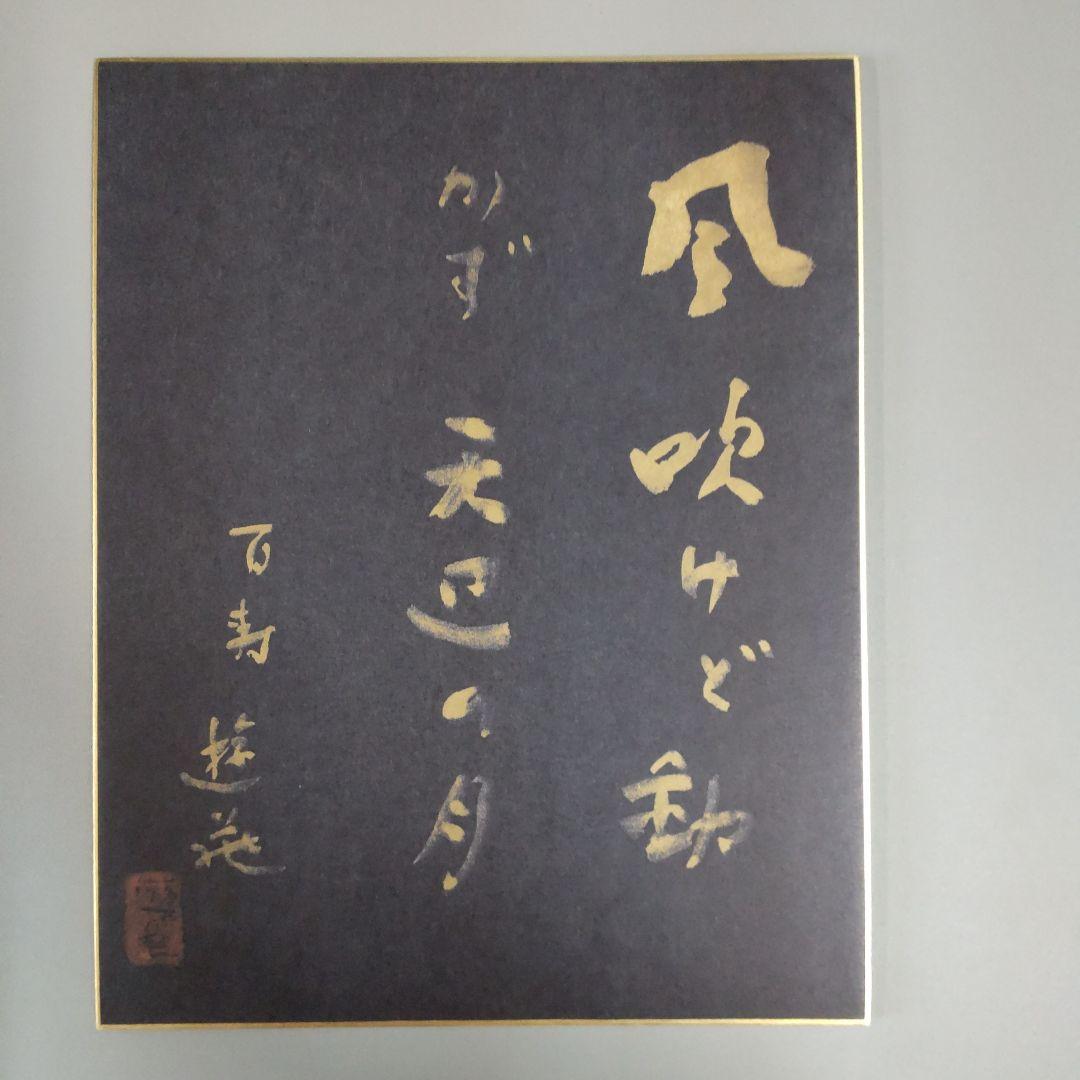 風吹けど動
かず天辺の月
百寿 遊花